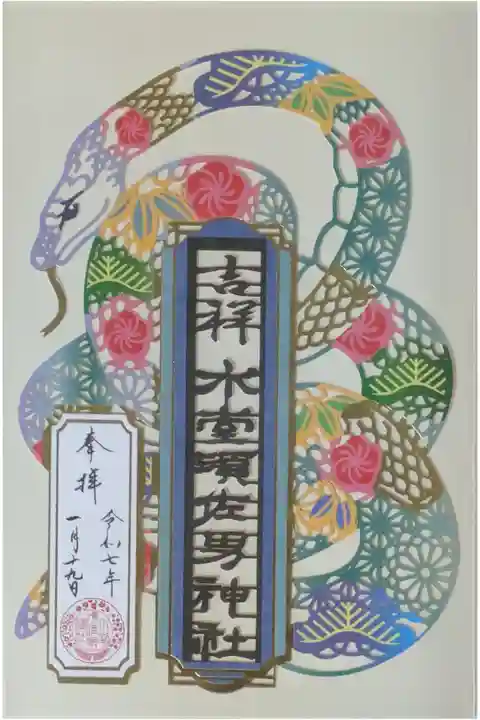 吉祥 水堂須佐男神社
奉拝
令和七年
一月十九日